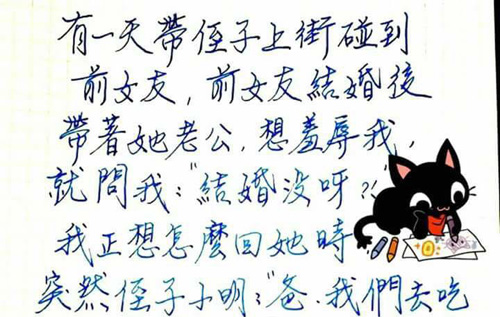 有一天帶侄子上街碰到
前女友，前女友結婚後
帶著她老公，想羞辱我，
就問我："結婚没呀？"
我正想怎麼回她時
突然侄子小明："爸、我們去吃